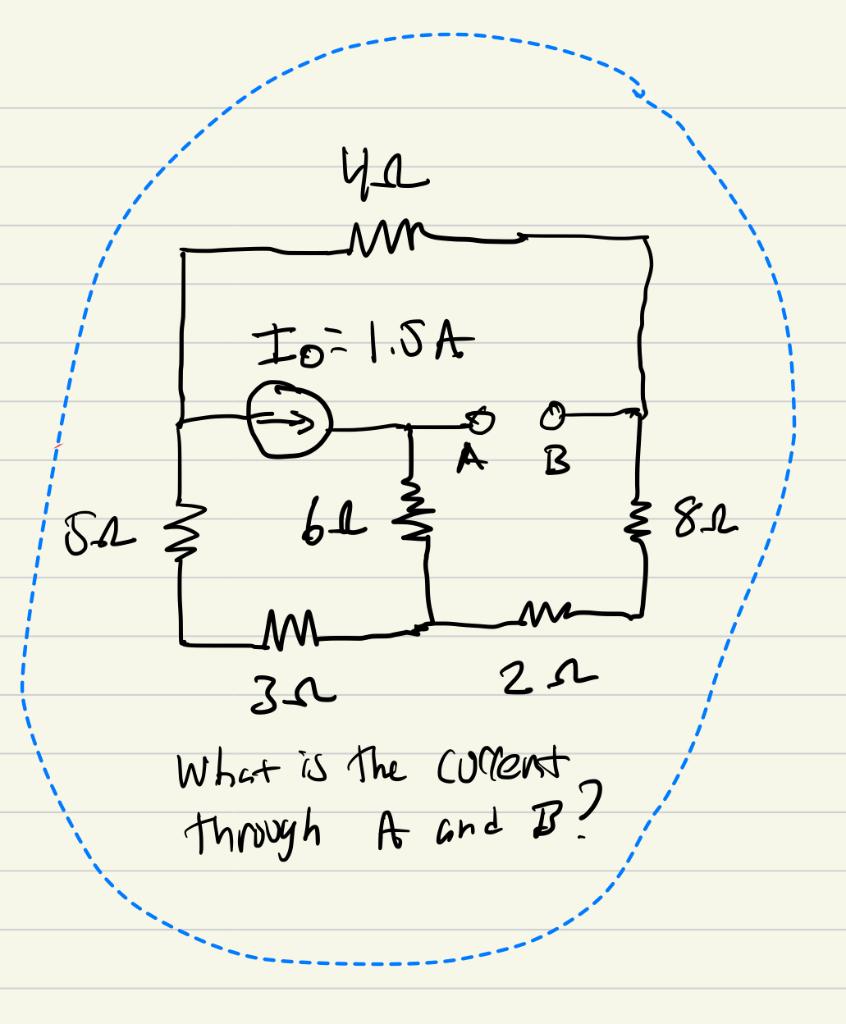 4Ω
I₀ = 1.5A
A
B
5Ω
6Ω
8Ω
3Ω
2Ω
What is the current
through A and B?